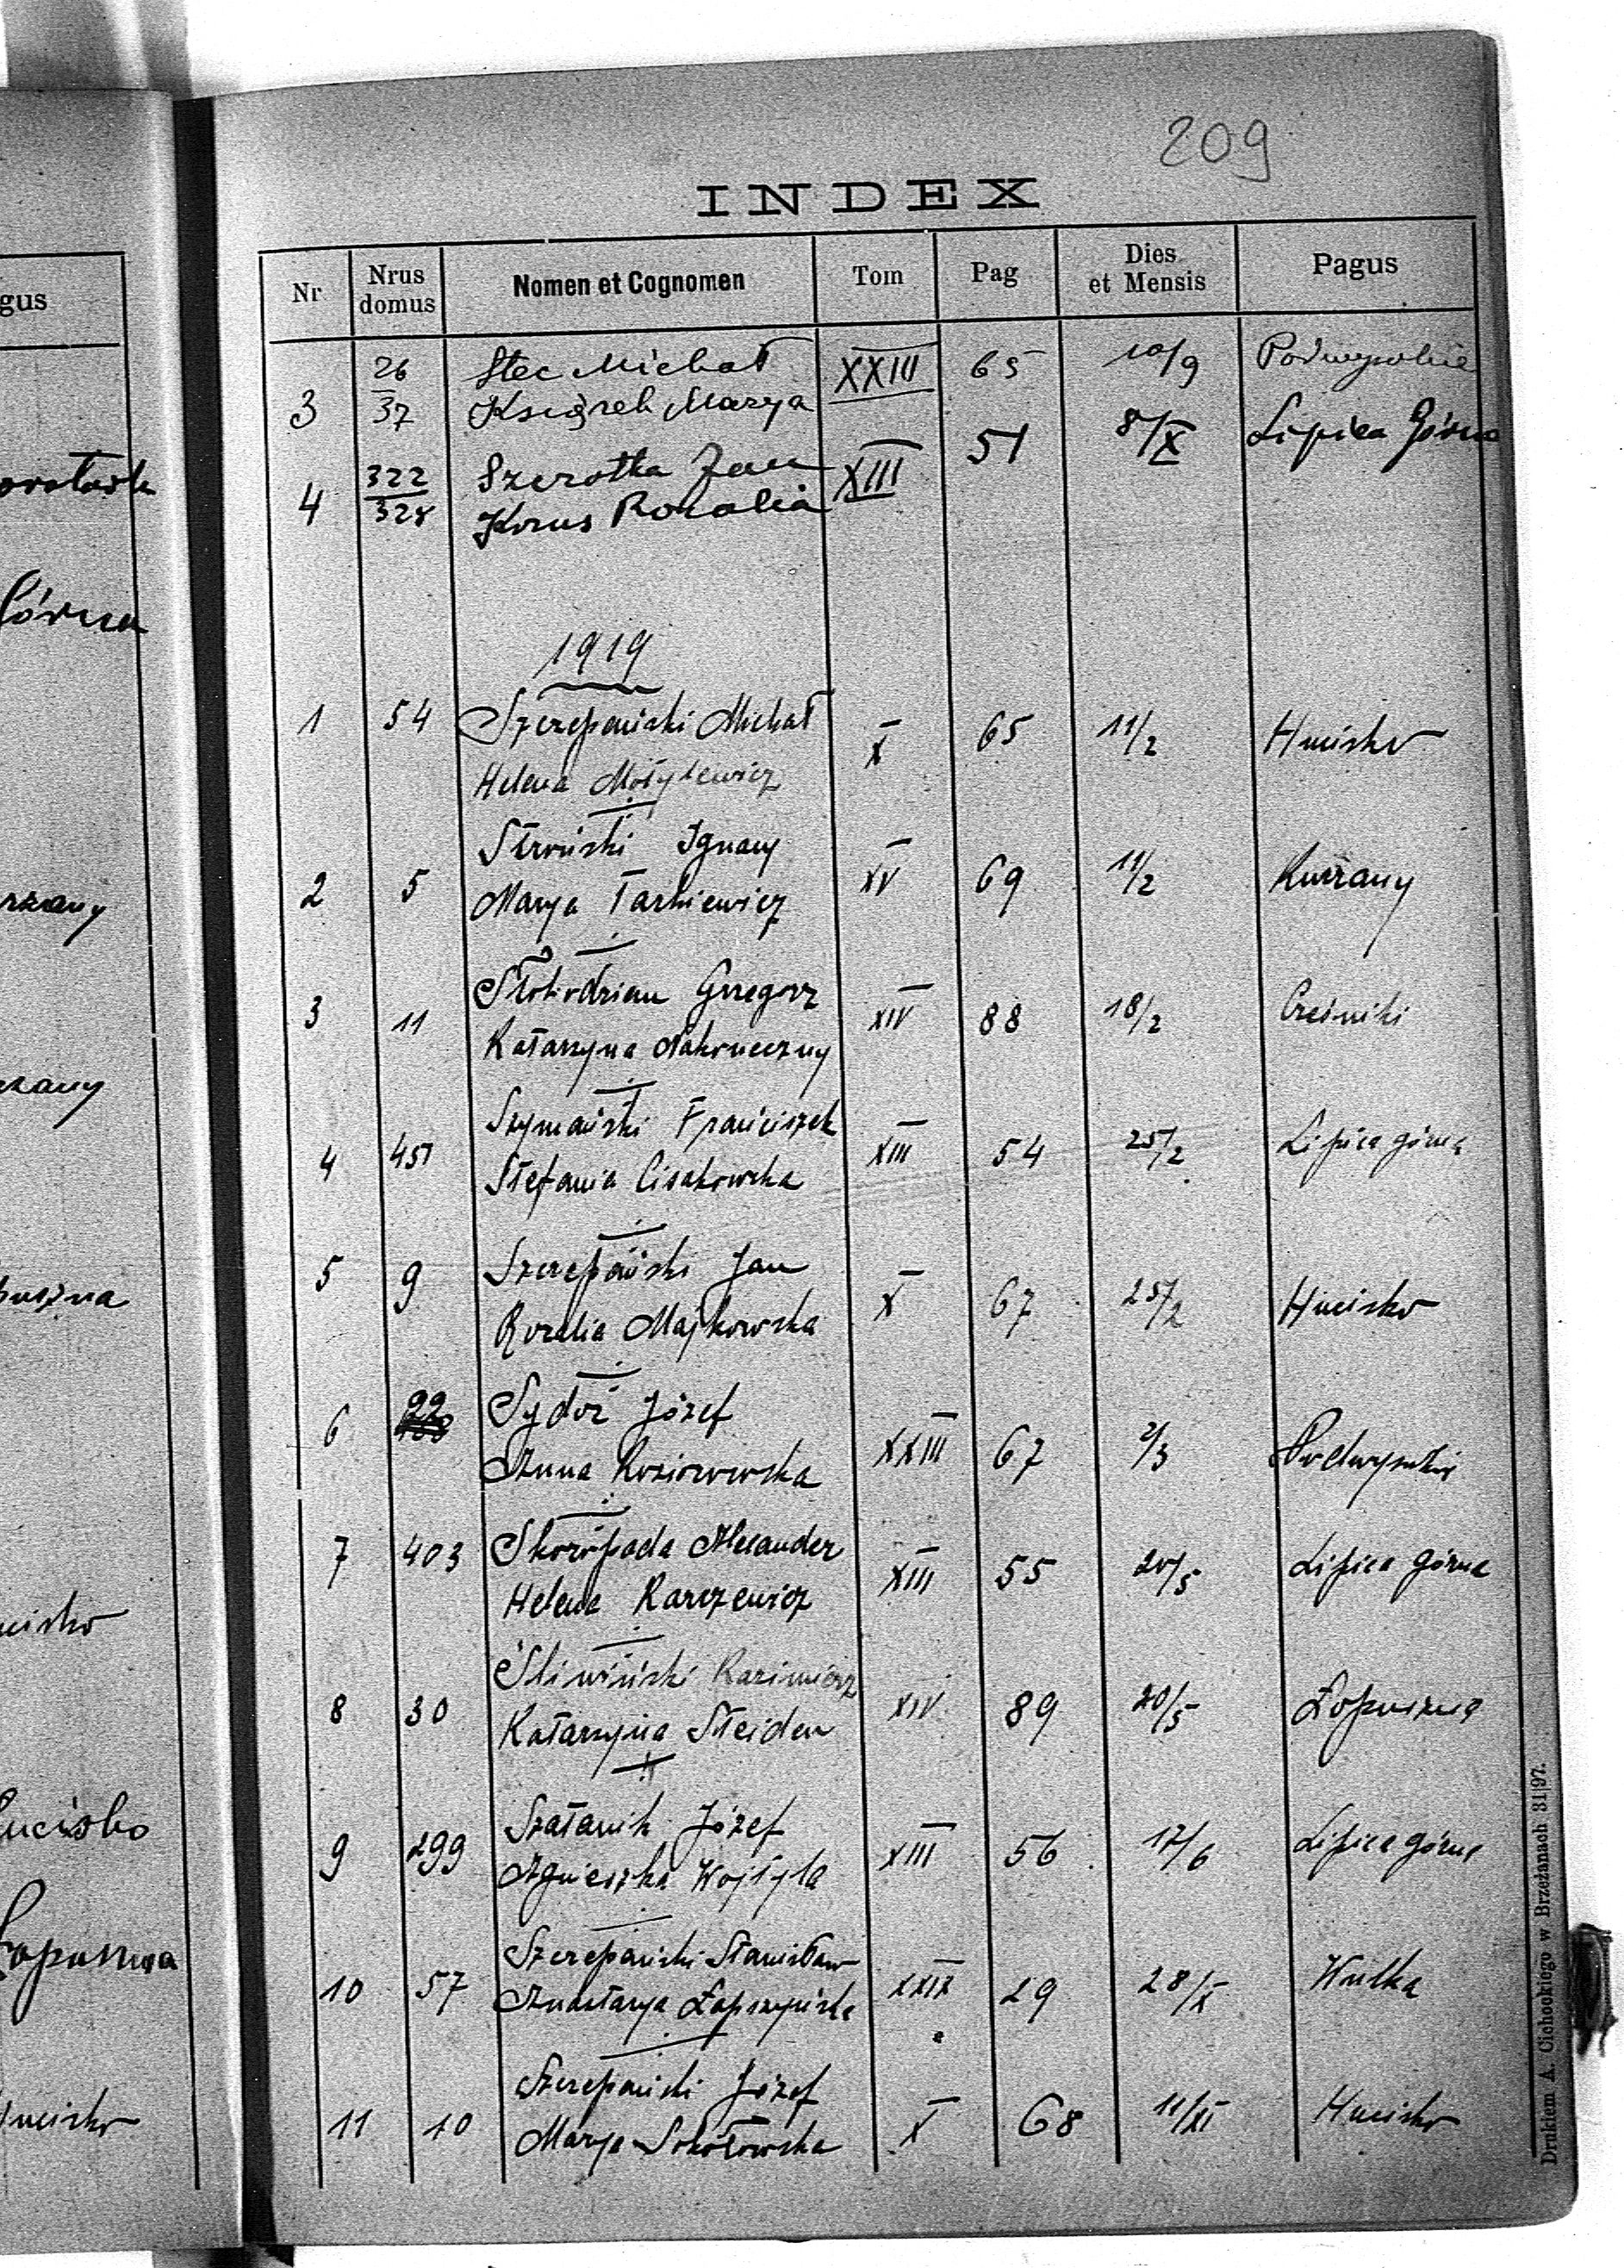 209
INDEX
Nr Nrus domus Nomen et Cognomen Tom Pag Dies et Mensis Pagus
26 Stec Michał XXIII 65 10/9
3 37 Marya
322 Szerotka Jan XIII 51 8/IX Lipica Górna
4 328 Korus Rozalia
1919
1 54 Szczepański Michał X 65 11/2 Hucisko
Helena Motylewicz
Stroński Ignacy
2 5 Marya Tarkiewicz XV 69 11/2 Kurzany
Słobodzian Grzegorz
3 11 Katarzyna Nakoneczny XIV 88 18/2 Cześniki
Szymański Franciszek
4 451 Stefania Cisakowska XIII 54 25/2 Lipica górna
5 9 Szczepański Jan X 67 25/2 Hucisko
Rozalia Majkowska
6 22 Sydor Józef XXIII 67 2/3 Podwysokie
Anna
7 403 Skoropada Alexander XIII 55 20/5 Lipica górna
Helena Karczewicz
Śliwiński Kazimierz
8 30 Katarzyna Steiden XIV 89 20/5 Łopuszna
Szatanik Józef
9 299 Agnieszka Wojtyła XIII 56 17/6 Lipica górna
Szczepański Stanisław
10 57 Anastazya Łopszyńska XXIX 29 28/X Wulka
Szczepański Józef
11 10 Marya Sokołowska X 68 11/XI Hucisko
Drukiem A. Cichockiego w Brzeżanach 31|97.
gus
Górna
rzany
zany
puszna
ucisko
ucisko
Łopuszna
ucisko